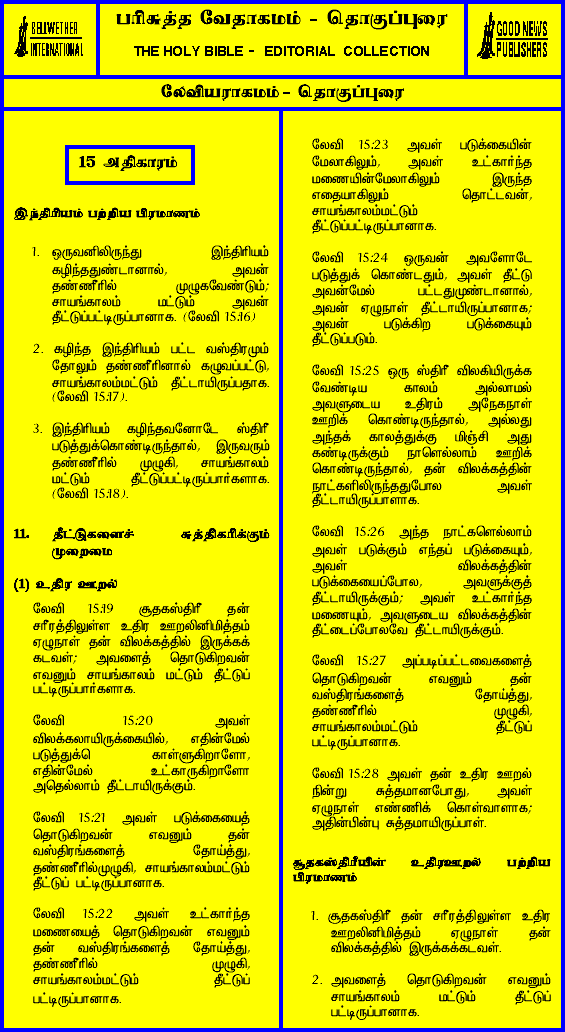 BELLWETHER
INTERNATIONAL
பரிசுத்த வேதாகமம் - தொகுப்புரை
THE HOLY BIBLE - EDITORIAL COLLECTION
GOOD NEWS
PUBLISHERS
லேவியராகமம் - தொகுப்புரை
15 அதிகாரம்
இந்திரியம் பற்றிய பிரமாணம்
1. ஒருவனிலிருந்து இந்திரியம்
கழிந்ததுண்டானால், அவன்
தண்ணீரில் முழுகவேண்டும்;
சாயங்காலம் மட்டும் அவன்
தீட்டுப்பட்டிருப்பானாக. (லேவி 15:16)
2. கழிந்த இந்திரியம் பட்ட வஸ்திரமும்
தோலும் தண்ணீரினால் கழுவப்பட்டு,
சாயங்காலம்மட்டும் தீட்டாயிருப்பதாக.
(லேவி 15:17).
3. இந்திரியம் கழிந்தவனோடே ஸ்திரீ
படுத்துக்கொண்டிருந்தால், இருவரும்
தண்ணீரில் முழுகி, சாயங்காலம்
மட்டும் தீட்டுப்பட்டிருப்பார்களாக.
(லேவி 15:18).
11. தீட்டுகளைச் சுத்திகரிக்கும்
முறைமை
(1) உதிர ஊறல்
லேவி 15:19 சூதகஸ்திரீ தன்
சரீரத்திலுள்ள உதிர ஊறலினிமித்தம்
ஏழுநாள் தன் விலக்கத்தில் இருக்கக்
கடவள்; அவளைத் தொடுகிறவன்
எவனும் சாயங்காலம் மட்டும் தீட்டுப்
பட்டிருப்பார்களாக.
லேவி 15:20 அவள்
விலக்கலாயிருக்கையில், எதின்மேல்
படுத்துக்கெ காள்ளுகிறாளோ,
எதின்மேல் உட்காருகிறாளோ
அதெல்லாம் தீட்டாயிருக்கும்.
லேவி 15:21 அவள் படுக்கையைத்
தொடுகிறவன் எவனும் தன்
வஸ்திரங்களைத் தோய்த்து,
தண்ணீரில்முழுகி, சாயங்காலம்மட்டும்
தீட்டுப் பட்டிருப்பானாக.
லேவி 15:22 அவள் உட்கார்ந்த
மணையைத் தொடுகிறவன் எவனும்
தன் வஸ்திரங்களைத் தோய்த்து,
தண்ணீரில் முழுகி,
சாயங்காலம்மட்டும் தீட்டுப்
பட்டிருப்பானாக.
லேவி 15:23 அவள் படுக்கையின்
மேலாகிலும், அவள் உட்கார்ந்த
மணையின்மேலாகிலும் இருந்த
எதையாகிலும் தொட்டவன்,
சாயங்காலம்மட்டும்
தீட்டுப்பட்டிருப்பானாக.
லேவி 15:24 ஒருவன் அவளோடே
படுத்துக் கொண்டதும், அவள் தீட்டு
அவன்மேல் பட்டதுமுண்டானால்,
அவன் ஏழுநாள் தீட்டாயிருப்பானாக;
அவன் படுக்கிற படுக்கையும்
தீட்டுப்படும்.
லேவி 15:25 ஒரு ஸ்திரீ விலகியிருக்க
வேண்டிய காலம் அல்லாமல்
அவளுடைய உதிரம் அநேகநாள்
ஊறிக் கொண்டிருந்தால், அல்லது
அந்தக் காலத்துக்கு மிஞ்சி அது
கண்டிருக்கும் நாளெல்லாம் ஊறிக்
கொண்டிருந்தால், தன் விலக்கத்தின்
நாட்களிலிருந்ததுபோல அவள்
தீட்டாயிருப்பாளாக.
லேவி 15:26 அந்த நாட்களெல்லாம்
அவள் படுக்கும் எந்தப் படுக்கையும்,
அவள் விலக்கத்தின்
படுக்கையைப்போல, அவளுக்குத்
தீட்டாயிருக்கும்; அவள் உட்கார்ந்த
மணையும், அவளுடைய விலக்கத்தின்
தீட்டைப்போலவே தீட்டாயிருக்கும்.
லேவி 15:27 அப்படிப்பட்டவைகளைத்
தொடுகிறவன் எவனும் தன்
வஸ்திரங்களைத் தோய்த்து,
தண்ணீரில் முழுகி,
சாயங்காலம்மட்டும் தீட்டுப்
பட்டிருப்பானாக.
லேவி 15:28 அவள் தன் உதிர ஊறல்
நின்று சுத்தமானபோது, அவள்
ஏழுநாள் எண்ணிக் கொள்வாளாக;
அதின்பின்பு சுத்தமாயிருப்பாள்.
சூதகஸ்திரீயின் உதிரஊறல் பற்றிய
பிரமாணம்
1. சூதகஸ்திரீ தன் சரீரத்திலுள்ள உதிர
ஊறலினிமித்தம் ஏழுநாள் தன்
விலக்கத்தில் இருக்கக்கடவள்.
2. அவளைத் தொடுகிறவன் எவனும்
சாயங்காலம் மட்டும் தீட்டுப்
பட்டிருப்பானாக.